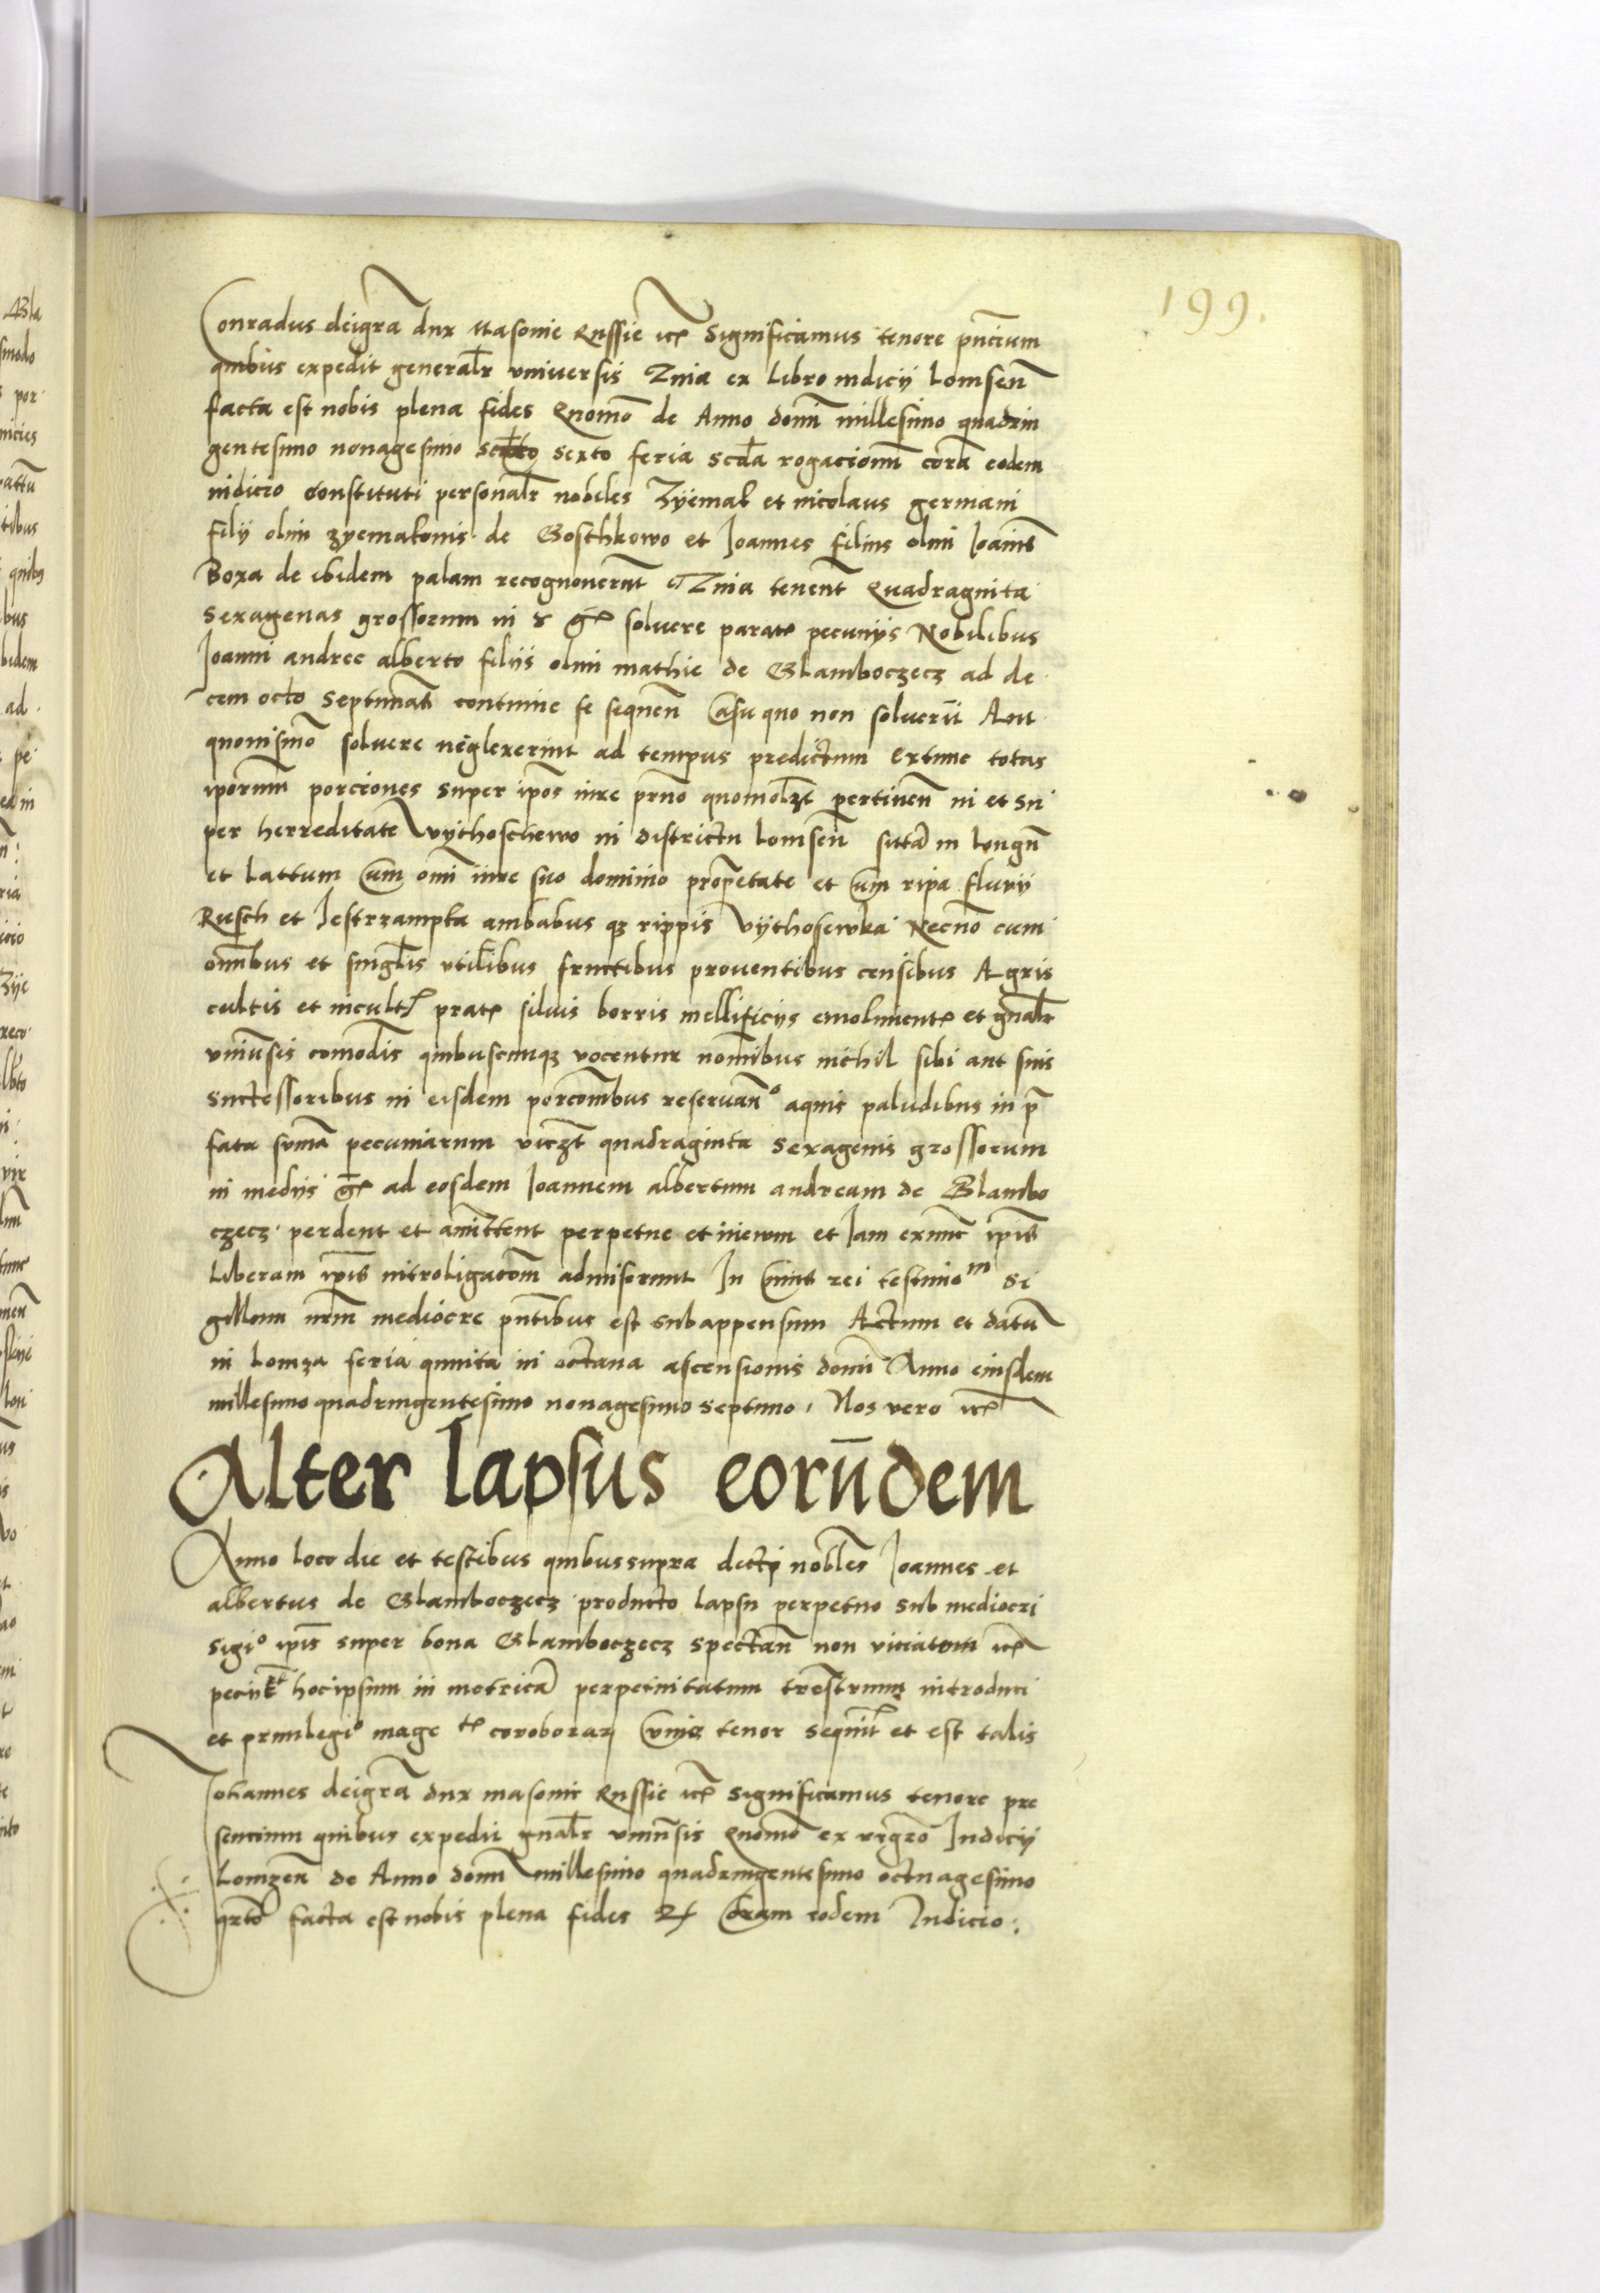 199.
Conradus deigra̅ dux Masonie Russie ?c Significamus tenore pn̅cium
quibus expedit general̅r vniuersis Quia ex Libro iudicij Lomsen̅
facta est nobis plena fides Quomo̅ de Anno domi̅ millesimo quadrin
gentesimo nonagesimo sexto feria scd̅a rogacionu̅ cora̅ eodem
iudicio constituti personal̅r nobiles Zyemak et nicolaus germani
filij olim zyemakonis de Goschkowo et Joannes filius olim Joa̅nis
Boxa de ibidem palam recognouerunt Quia tenent̅ Quadraginta
sexagenas grossorum in soluere parat? pecunijs Nobilibus
Joanni andree alberto filijs olim mathie de Glamboczecz ad de
cem octo septimana̅s continue se sequen̅ Casu quo non soluerit Aut
quouismo̅ soluere neglexerint ad tempus predictum Extunc totas
ipo̅rum porciones super ipo̅s iure prno̅ quomol̅zt pertinen̅ in et su
per herreditate Vythoschewo in districtu Lomsen̅ sitta̅ in longu̅
et lattum Cum omi̅ iure suo dominio prop̅etate et Cum ripa fluvij
Rusch et Jestrzampka ambabus q? rippis Vythosewka Necno̅ cum
omi̅bus et singl̅is vtilibus fructibus prouentibus censibus Agris
cultis et incult? prat? siluis borris mellificijs emolument? et gn̅al̅r
vniue̅sis comod̅is quibuscunq? vocentur nomi̅bus nichil sibi aut suis
successoribus in eisdem porcom̅bus reseruan̅o aquis paludibus in p̅
fata suma̅ pecuniarum vicz̅t quadraginta sexagenis grossorum
in medijs g? ad eosdem Joannem albertum andream de Glambo
czecz perdent et amittent perpetue et ineuum et Jam exnunc ipi̅s
Liberam ipi̅s intro ligacom̅ admiserunt In Cuius rei testimo̅m Si
gillum nr̅m mediocre pn̅tibus est subappensum Actum et datu̅
in Lomza feria quinta in octaua ascensionis domi̅ Anno eiusdem
millesimo quadringentesimo nonagesimo septimo, Nos vero ?c
Alter lapsus eoru̅dem
Anno loco die et testibus quibus supra dicti nobl̅es Joannes et
albertus de Glamboczecz producto lapsu perpetuo sub mediocri
sigio ipi̅s super bona Glamboczecz spectan̅ non viciatum ?c
peciit hoc ipsum in metrica̅ perpetuitatum trestrum introduci
et priuilegio mage coroborari Cuius tenor sequit̅r et est talis
Johannes deigra̅ dux masonie Russie ?c significamus tenore pre
sencium quibus expedit gn̅al̅r vniue̅sis Quomo̅ ex regro̅ Judicij
Lomzen̅ de Anno domi̅ millesimo quadringentesimo octuagesimo
qrto̅ facta est nobis plena fides Coram eodem Judicio